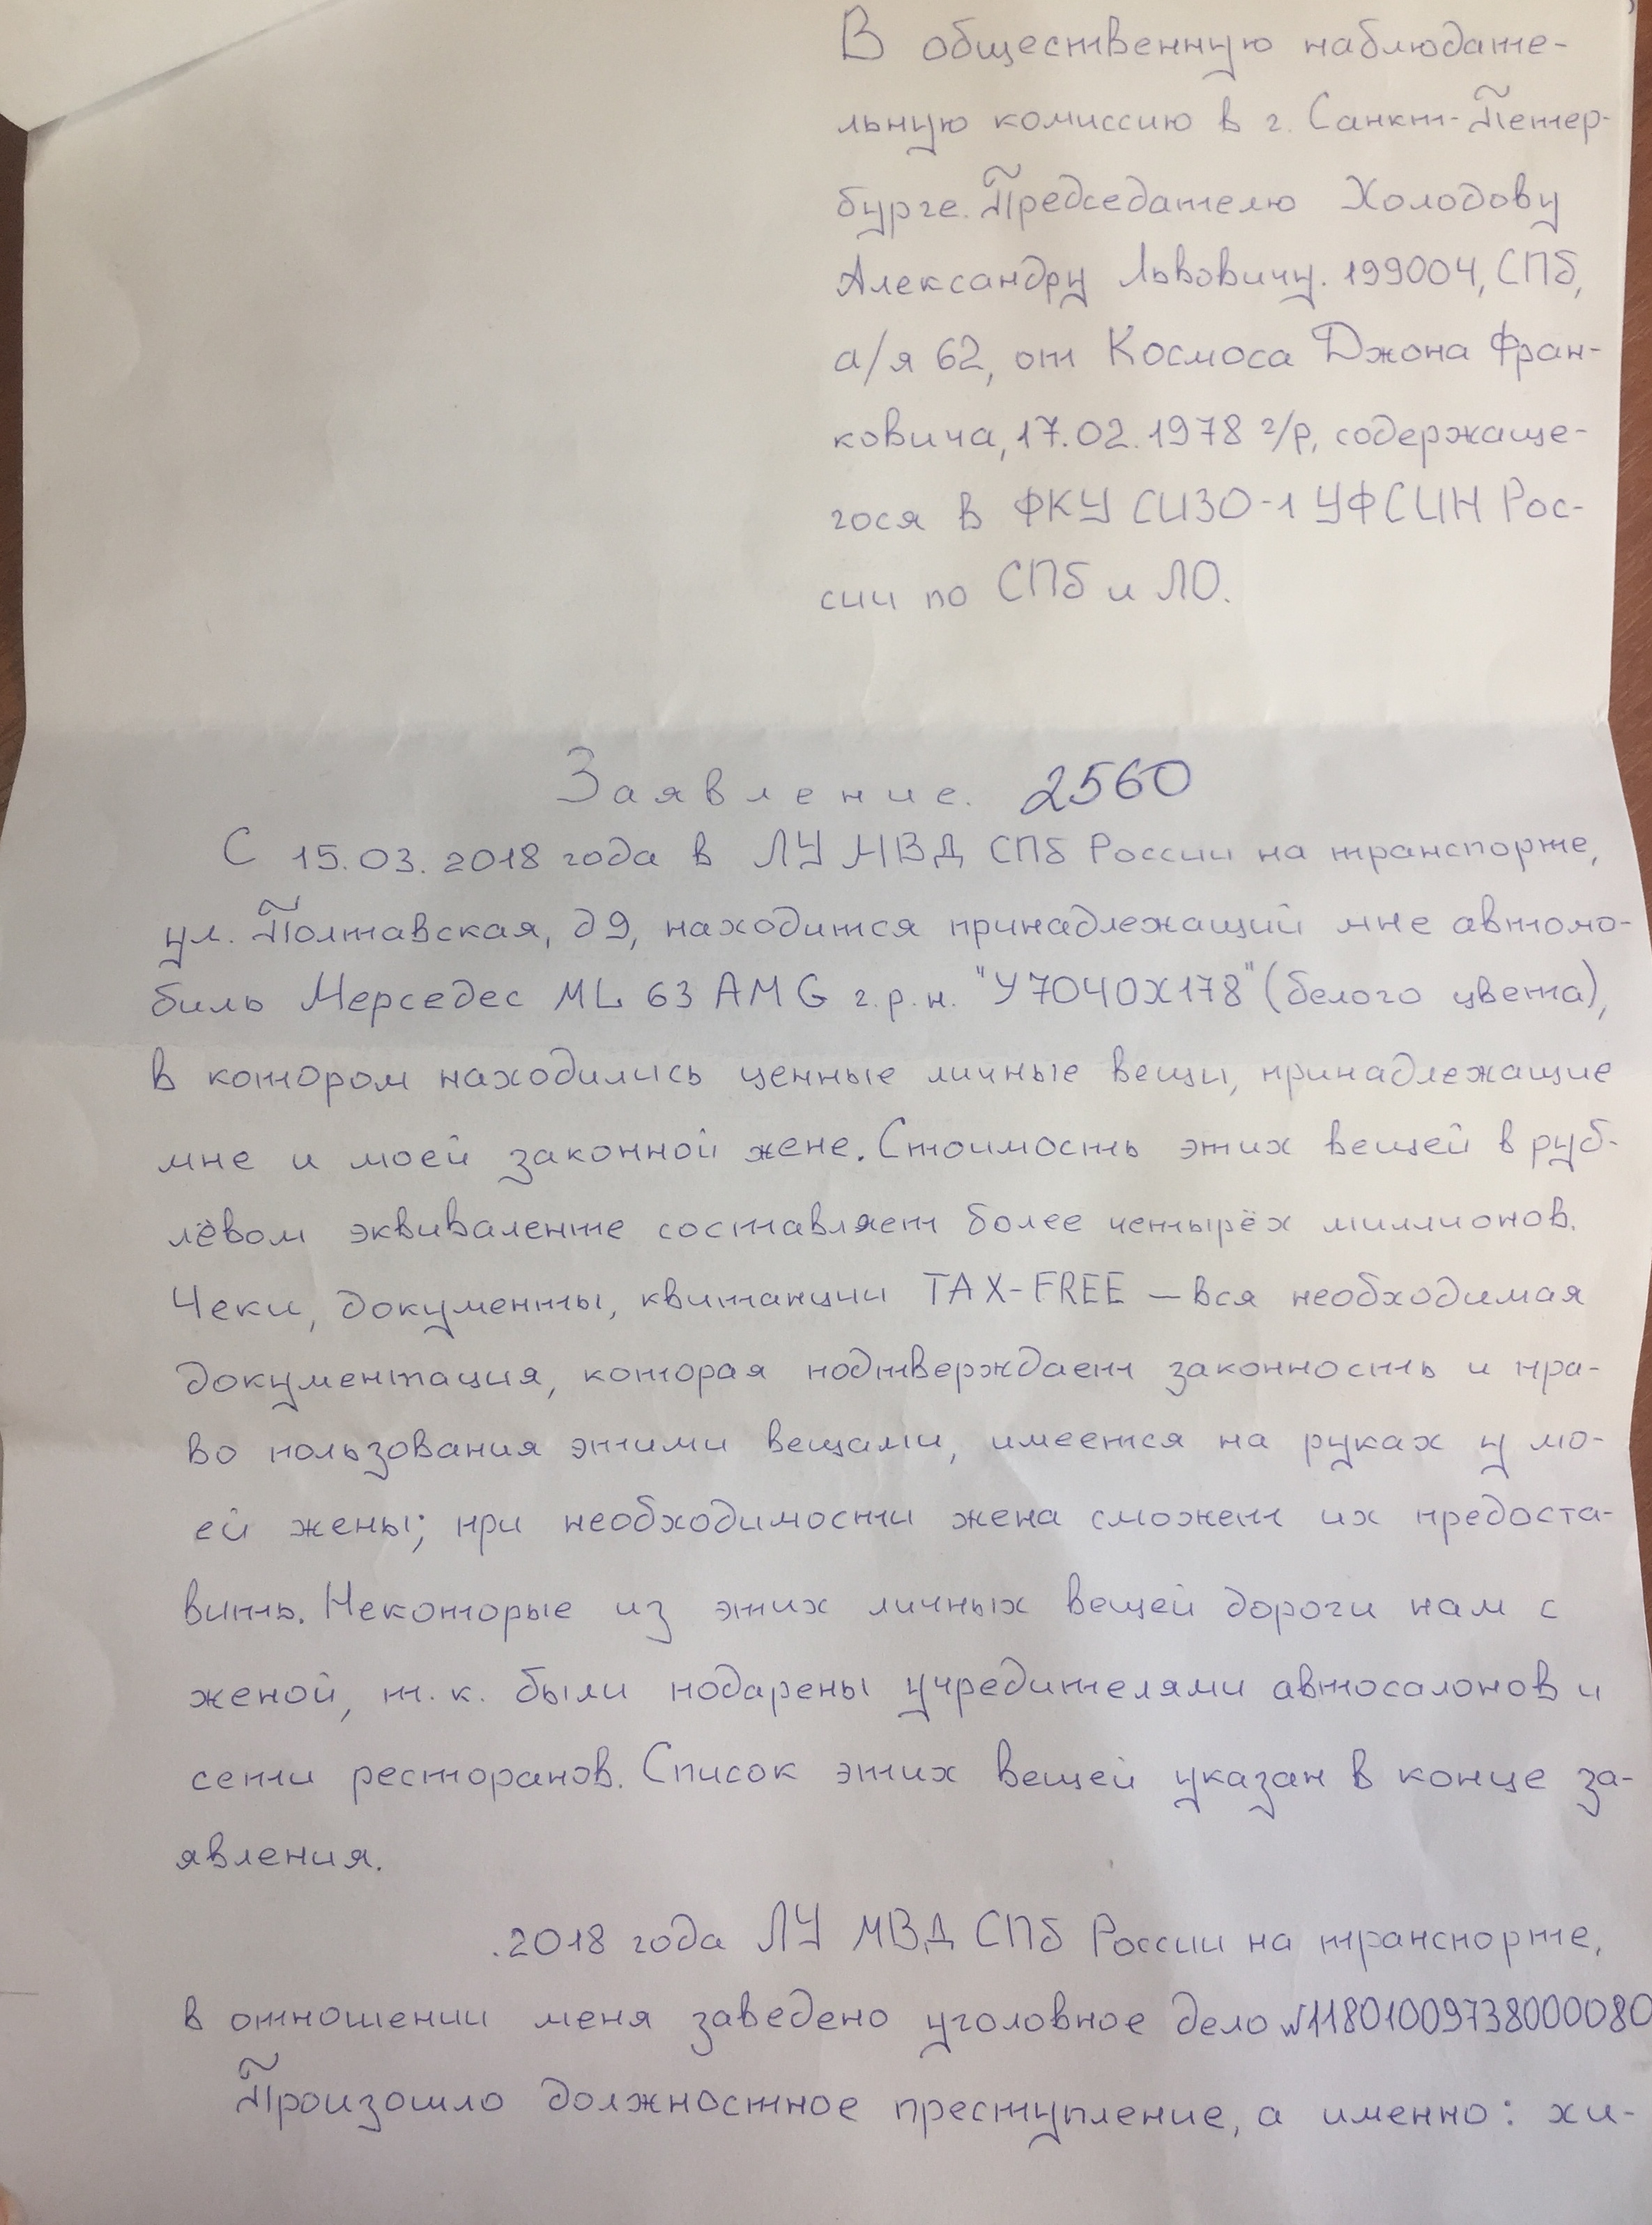 В общественную наблюдате-
льную комиссию в г. Санкт-Петер-
бурге. Председателю Холодову
Александру Львовичу. 199004, СПб,
а/я 62, от Космоса Джона Фран-
ковича, 17.02.1978 г/р, содержаще-
гося в ФКУ СИЗО-1 УФСИН Рос-
сии по СПб и ЛО.
Заявление. 2560
С 15.03.2018 года в ЛУ МВД СПб России на транспорте,
ул. Полтавская, д 9, находится принадлежащий мне автомо-
биль Мерседес ML 63 AMG г.р.н. "У704ОХ178" (белого цвета),
в котором находились ценные личные вещи, принадлежащие
мне и моей законной жене. Стоимость этих вещей в руб-
лёвом эквиваленте составляет более четырёх миллионов.
Чеки, документы, квитанции TAX-FREE — вся необходимая
документация, которая подтверждает законность и пра-
во пользования этими вещами, имеется на руках у мо-
ей жены; при необходимости жена сможет их предоста-
вить. Некоторые из этих личных вещей дороги нам с
женой, т.к. были подарены учредителями автосалонов и
сети ресторанов. Список этих вещей указан в конце за-
явления.
.2018 года ЛУ МВД СПб России на транспорте,
в отношении меня заведено уголовное дело №11801009738000080
Произошло должностное преступление, а именно: хи-